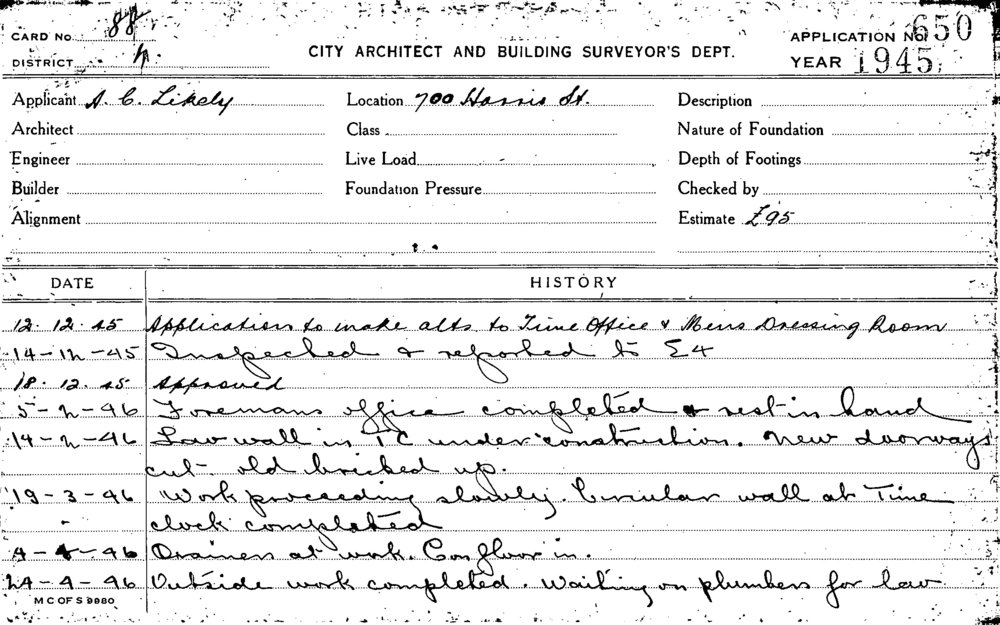 CARD No. 88
DISTRICT 4.
CITY ARCHITECT AND BUILDING SURVEYOR'S DEPT.
APPLICATION No. 650
YEAR 1945.
Applicant A. C. Likely Location 700 Harris St. Description
Architect Class Nature of Foundation
Engineer Live Load Depth of Footings
Builder Foundation Pressure Checked by
Alignment Estimate £95
DATE HISTORY
12.12.45 Application to make alts to Time Office & Mens Dressing Room
14-12-45 Inspected & reported to E4
18.12.45 Approved
5-2-46 Foremans office completed & rest in hand
14-2-46 Lav wall in TC under construction. New doorways
cut old bricked up.
19-3-46 Work proceeding slowly. Circular wall at Time
clock completed
4-4-46 Drainers at work. Con floor in.
24-4-46 Outside work completed. Waiting on plumbers for lav
M C OF S 9980